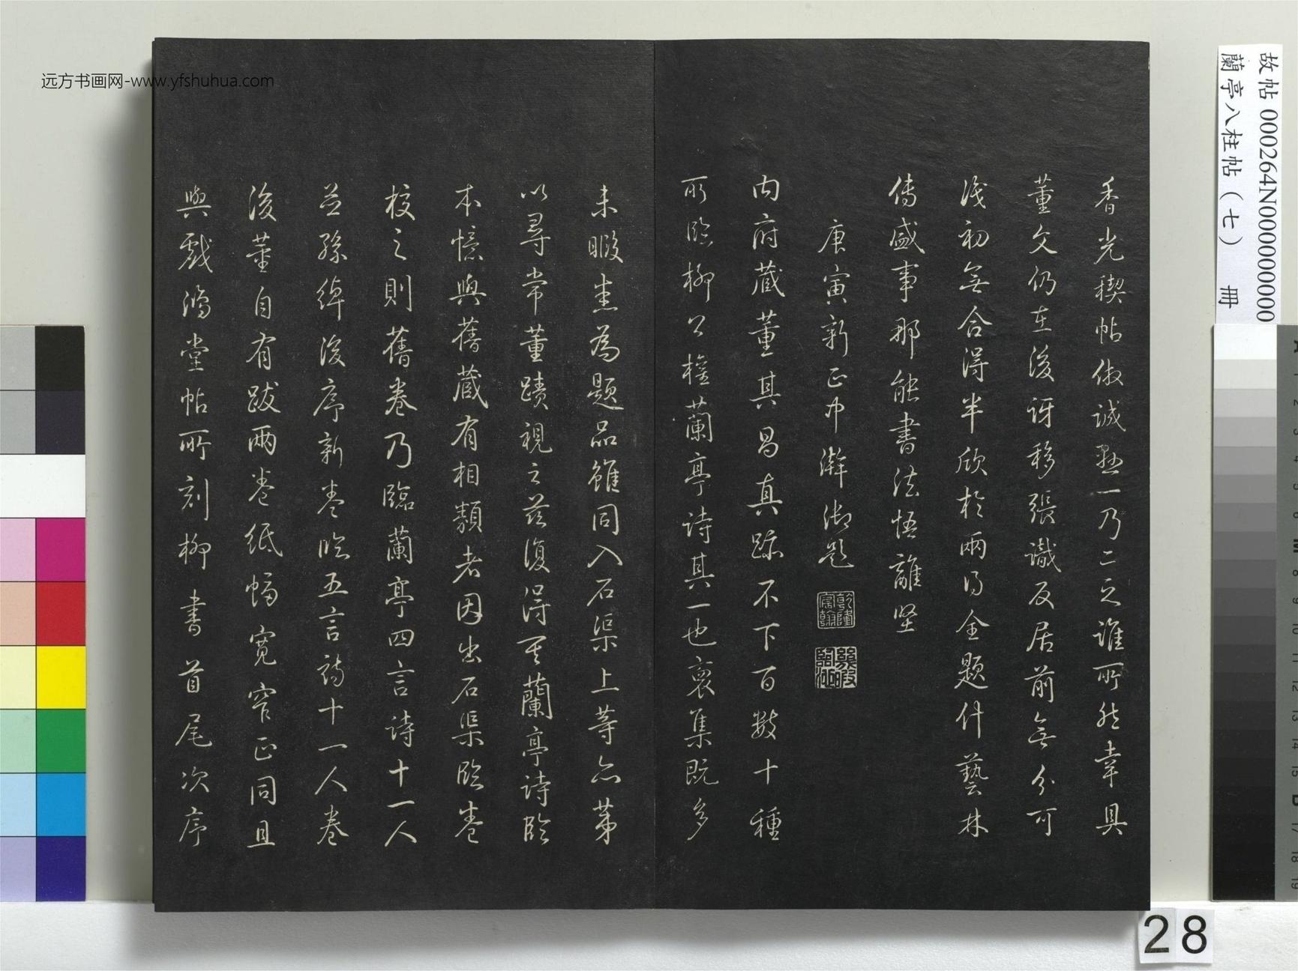 香光禊帖倣誠懸一乃二之誰所能幸具
董父仍在後訝移張識反居前無分可
淺初無合得半欣於兩得全題什藝林
傳盛事那能書法悟離堅
庚寅新正中澣御題
乾隆宸翰
內府蔵董其昌真跡不下百數十種
所臨柳公權蘭亭詩其一也裒集既多
未暇悉為題品雖同入石渠上等亦第
以尋常董蹟視之茲復得其蘭亭詩臨
本憶與舊蔵有相類者因出石渠臨卷
校之則舊卷乃臨蘭亭四言詩十一人
並孫綽後序新卷臨五言詩十一人卷
後董自有跋兩卷紙幅寬窄正同且
與戲鴻堂帖所刻柳書首尾次序
故帖000264N000000000
蘭亭八柱帖（七） 冊
远方书画网-www.yfshuhua.com
28